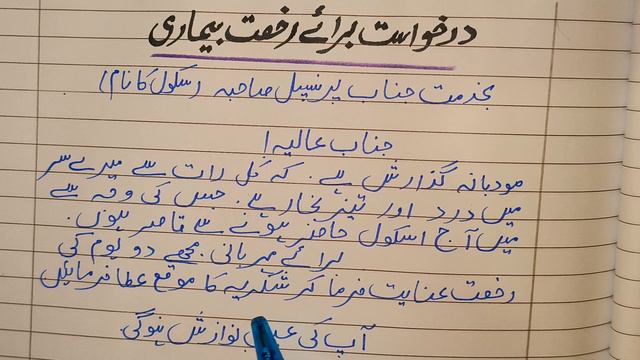 درخواست برائے رخصت بیماری
بخدمت جناب پرنسپل صاحبہ (سکول کا نام)
جناب عالیہ!
مودبانہ گذارش ہے۔ کہ کل رات سے میرے سر
میں درد اور تیز بخار ہے۔ جس کی وجہ سے
میں آج اسکول حاضر ہونے سے قاصر ہوں۔
برائے مہربانی۔ مجھے دو یوم کی
رخصت عنایت فرما کر شکریہ کا موقع عطا فرمائیں
آپ کی نوازش ہوگی